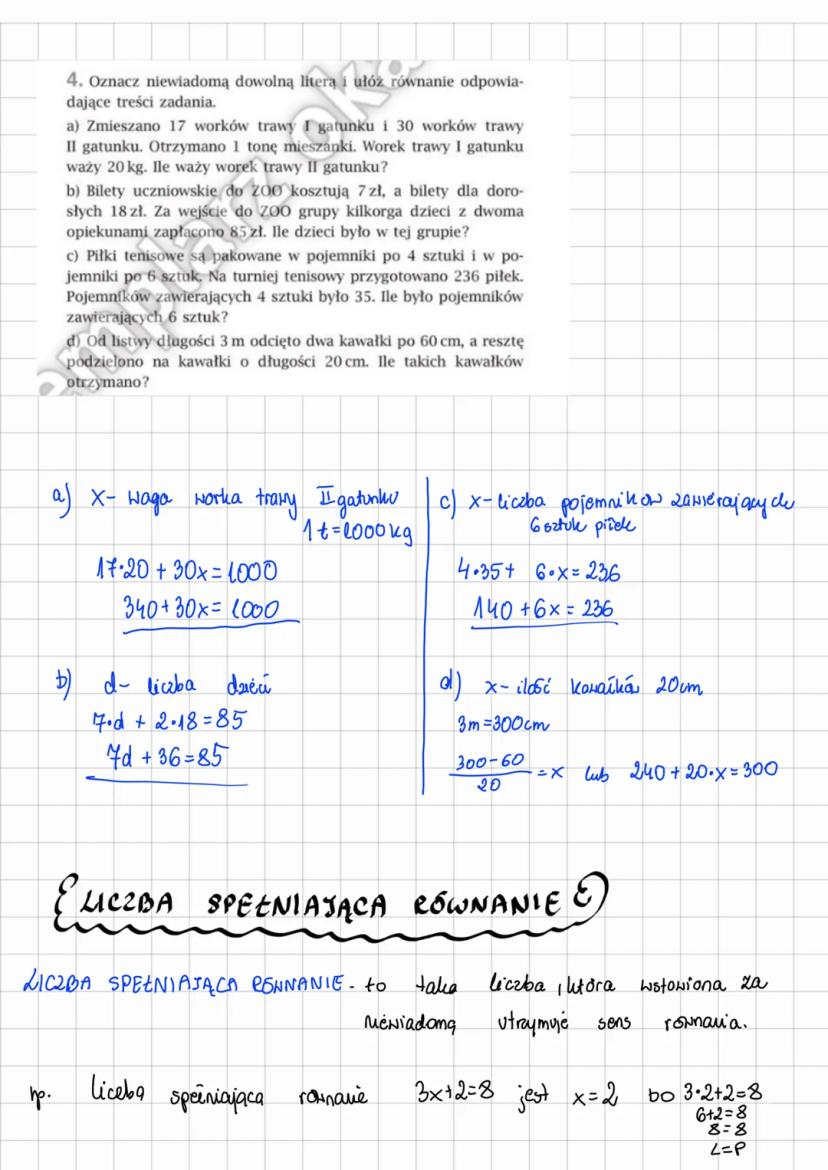 4. Oznacz niewiadomą dowolną literą i ułóż równanie odpowia-
dające treści zadania.
a) Zmieszano 17 worków trawy I gatunku i 30 worków trawy
II gatunku. Otrzymano 1 tonę mieszanki. Worek trawy I gatunku
waży 20 kg. Ile waży worek trawy II gatunku?
b) Bilety uczniowskie do ZOO kosztują 7 zł, a bilety dla doro-
słych 18 zł. Za wejście do ZOO grupy kilkorga dzieci z dwoma
opiekunami zapłacono 85 zł. Ile dzieci było w tej grupie?
c) Piłki tenisowe są pakowane w pojemniki po 4 sztuki i w po-
jemniki po 6 sztuk. Na turniej tenisowy przygotowano 236 piłek.
Pojemników zawierających 4 sztuki było 35. Ile było pojemników
zawierających 6 sztuk?
d) Od listwy długości 3 m odcięto dwa kawałki po 60 cm, a resztę
podzielono na kawałki o długości 20 cm. Ile takich kawałków
otrzymano?
a) x- waga worka trawy II gatunku
1t=1000kg
17·20 + 30x = 1000
340+30x= 1000
b) d- liczba dzieci
7·d + 2·18=85
7d +36=85
c) x-liczba pojemników zawierających
6 sztuk piłek
4·35+ 6·x= 236
140 +6x = 236
d) x- ilość kawałków 20cm
3m=300cm
300-60
20
=x lub 240+20·x=300
LICZBA SPEŁNIAJĄCA RÓWNANIE
LICZBA SPEŁNIAJĄCA RÓWNANIE - to taka liczba, która wstawiona za
niewiadomą utrzymuje sens równania.
np. liczbą spełniającą równanie 3x+2=8 jest x=2 bo 3·2+2=8
6+2=8
8=8
L=P